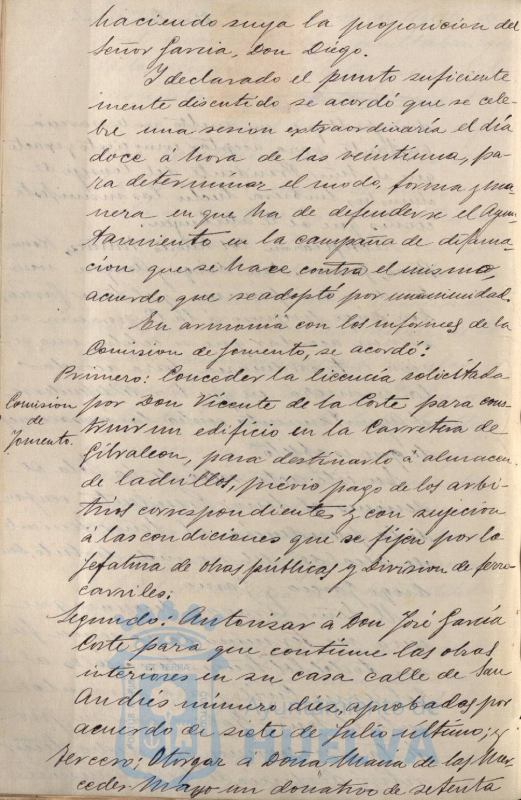 haciendo suya la proposicion del
Señor Garcia, Don Diego.
Y declarado el punto suficiente
mente discutido se acordó que se cele-
bre una sesion extraordinaria el dia
doce á hora de las veintiuna, pa-
ra determinar el modo, forma y ma-
nera en que ha de defenderse el Ayun-
tamiento en la campaña de difama-
cion que se hace contra el mismo
acuerdo que se adoptó por unanimidad.
En armonia con los informes de la
Comision de fomento, se acordó:
Primero: Conceder la licencia solicitada
Comision
de
fomento.
por Don Vicente de la Corte para cons-
truir un edificio en la Carretera de
Gibraleon, para destinarlo á almacen
de ladrillos, prévio pago de los arbi-
trios correspondientes y con sujecion
á las condiciones que se fijen por la
Jefatura de obras públicas y Division de ferro-
carriles;
Segundo: Autorizar á Don José García
Corte para que continue las obras
interiores en su casa calle de San
Andrés número diez, aprobadas por
acuerdo de siete de Julio último; y
Tercero; Otorgar á Doña Maria de las Mer-
cedes Mayo un donativo de setenta
HUELVA